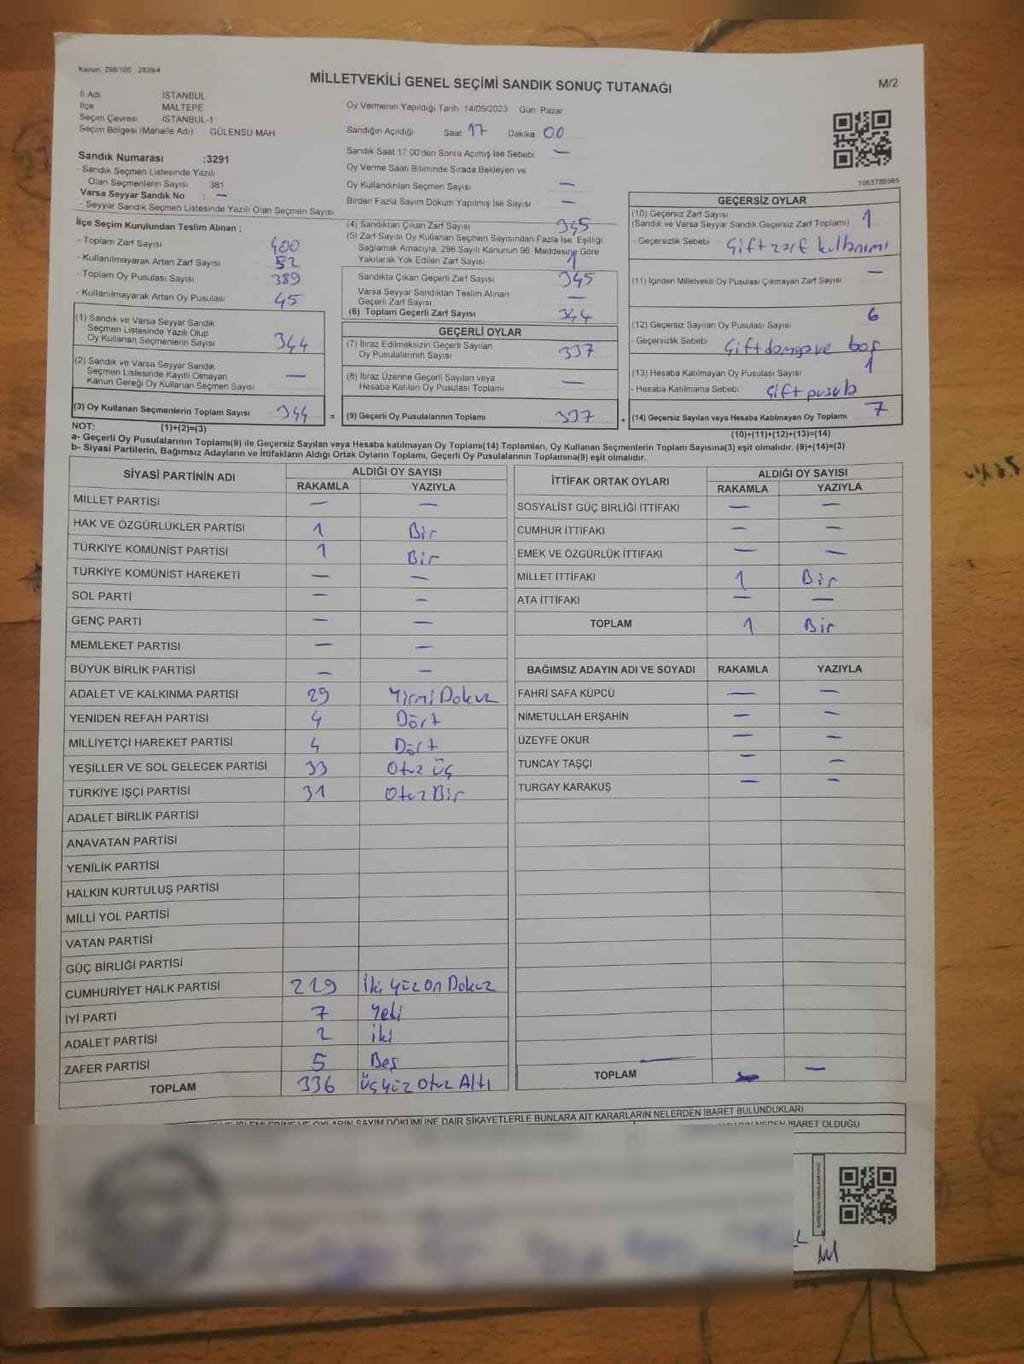 Kanun: 298/105 2839/4
MİLLETVEKİLİ GENEL SEÇİMİ SANDIK SONUÇ TUTANAĞI
M/2
İl Adı İSTANBUL
İlçe MALTEPE
Seçim Çevresi İSTANBUL-1
Seçim Bölgesi (Mahalle Adı) : GÜLENSU MAH.
Oy Vermenin Yapıldığı Tarih: 14/05/2023 Gün: Pazar
Sandığın Açıldığı Saat 17 Dakika 00
Sandık Saat 17:00'den Sonra Açılmış İse Sebebi: —
Oy Verme Saati Bitiminde Sırada Bekleyen ve
Oy Kullandırılan Seçmen Sayısı —
Birden Fazla Sayım Döküm Yapılmış İse Sayısı —
Sandık Numarası :3291
- Sandık Seçmen Listesinde Yazılı
Olan Seçmenlerin Sayısı 381
Varsa Seyyar Sandık No : —
- Seyyar Sandık Seçmen Listesinde Yazılı Olan Seçmen Sayısı
İlçe Seçim Kurulundan Teslim Alınan ;
- Toplam Zarf Sayısı 400
- Kullanılmayarak Artan Zarf Sayısı 52
- Toplam Oy Pusulası Sayısı 389
- Kullanılmayarak Artan Oy Pusulası 45
(1) Sandık ve Varsa Seyyar Sandık
Seçmen Listesinde Yazılı Olup
Oy Kullanan Seçmenlerin Sayısı 344
(2) Sandık ve Varsa Seyyar Sandık
Seçmen Listesinde Kayıtlı Olmayan
Kanun Gereği Oy Kullanan Seçmen Sayısı —
(3) Oy Kullanan Seçmenlerin Toplam Sayısı 344 =
(4) Sandıktan Çıkan Zarf Sayısı 345
(5) Zarf Sayısı Oy Kullanan Seçmen Sayısından Fazla İse, Eşitliği
Sağlamak Amacıyla, 298 Sayılı Kanunun 98. Maddesine Göre
Yakılarak Yok Edilen Zarf Sayısı 1
Sandıkta Çıkan Geçerli Zarf Sayısı 345
Varsa Seyyar Sandıktan Teslim Alınan
Geçerli Zarf Sayısı —
(6) Toplam Geçerli Zarf Sayısı 344
GEÇERLİ OYLAR
(7) İtiraz Edilmeksizin Geçerli Sayılan
Oy Pusulalarının Sayısı 337
(8) İtiraz Üzerine Geçerli Sayılan veya
Hesaba Katılan Oy Pusulası Toplamı —
(9) Geçerli Oy Pusulalarının Toplamı 337 +
1083788565
GEÇERSİZ OYLAR
(10) Geçersiz Zarf Sayısı 1
(Sandık ve Varsa Seyyar Sandık Geçersiz Zarf Toplamı)
- Geçersizlik Sebebi : Çift zarf kullanımı
(11) İçinden Milletvekili Oy Pusulası Çıkmayan Zarf Sayısı —
(12) Geçersiz Sayılan Oy Pusulası Sayısı 6
- Geçersizlik Sebebi : Çift damga ve boş
(13) Hesaba Katılmayan Oy Pusulası Sayısı 1
- Hesaba Katılmama Sebebi : Çift pusula
(14) Geçersiz Sayılan veya Hesaba Katılmayan Oy Toplamı 7
NOT: (1)+(2)=(3) (10)+(11)+(12)+(13)=(14)
a- Geçerli Oy Pusulalarının Toplamı(9) ile Geçersiz Sayılan veya Hesaba katılmayan Oy Toplamı(14) Toplamları, Oy Kullanan Seçmenlerin Toplam Sayısına(3) eşit olmalıdır. (9)+(14)=(3)
b- Siyasi Partilerin, Bağımsız Adayların ve İttifakların Aldığı Ortak Oyların Toplamı, Geçerli Oy Pusulalarının Toplamına(9) eşit olmalıdır.
SİYASİ PARTİNİN ADI ALDIĞI OY SAYISI
RAKAMLA YAZIYLA
MİLLET PARTİSİ — —
HAK VE ÖZGÜRLÜKLER PARTİSİ 1 Bir
TÜRKİYE KOMÜNİST PARTİSİ 1 Bir
TÜRKİYE KOMÜNİST HAREKETİ — —
SOL PARTİ — —
GENÇ PARTİ — —
MEMLEKET PARTİSİ — —
BÜYÜK BİRLİK PARTİSİ — —
ADALET VE KALKINMA PARTİSİ 29 Yirmi Dokuz
YENİDEN REFAH PARTİSİ 4 Dört
MİLLİYETÇİ HAREKET PARTİSİ 4 Dört
YEŞİLLER VE SOL GELECEK PARTİSİ 33 Otuz Üç
TÜRKİYE İŞÇİ PARTİSİ 31 Otuz Bir
ADALET BİRLİK PARTİSİ
ANAVATAN PARTİSİ
YENİLİK PARTİSİ
HALKIN KURTULUŞ PARTİSİ
MİLLİ YOL PARTİSİ
VATAN PARTİSİ
GÜÇ BİRLİĞİ PARTİSİ
CUMHURİYET HALK PARTİSİ 219 İki Yüz On Dokuz
İYİ PARTİ 7 Yedi
ADALET PARTİSİ 2 İki
ZAFER PARTİSİ 5 Beş
TOPLAM 336 Üç Yüz Otuz Altı
İTTİFAK ORTAK OYLARI ALDIĞI OY SAYISI
RAKAMLA YAZIYLA
SOSYALİST GÜÇ BİRLİĞİ İTTİFAKI — —
CUMHUR İTTİFAKI — —
EMEK VE ÖZGÜRLÜK İTTİFAKI — —
MİLLET İTTİFAKI 1 Bir
ATA İTTİFAKI — —
TOPLAM 1 Bir
BAĞIMSIZ ADAYIN ADI VE SOYADI RAKAMLA YAZIYLA
FAHRİ SAFA KÜPCÜ — —
NİMETULLAH ERŞAHİN — —
ÜZEYFE OKUR — —
TUNCAY TAŞÇI — —
TURGAY KARAKUŞ — —
TOPLAM — —
OYLARIN SAYIM DÖKÜMÜNE DAİR ŞİKAYETLERLE BUNLARA AİT KARARLARIN NELERDEN İBARET BULUNDUKLARI
İBARET OLDUĞU